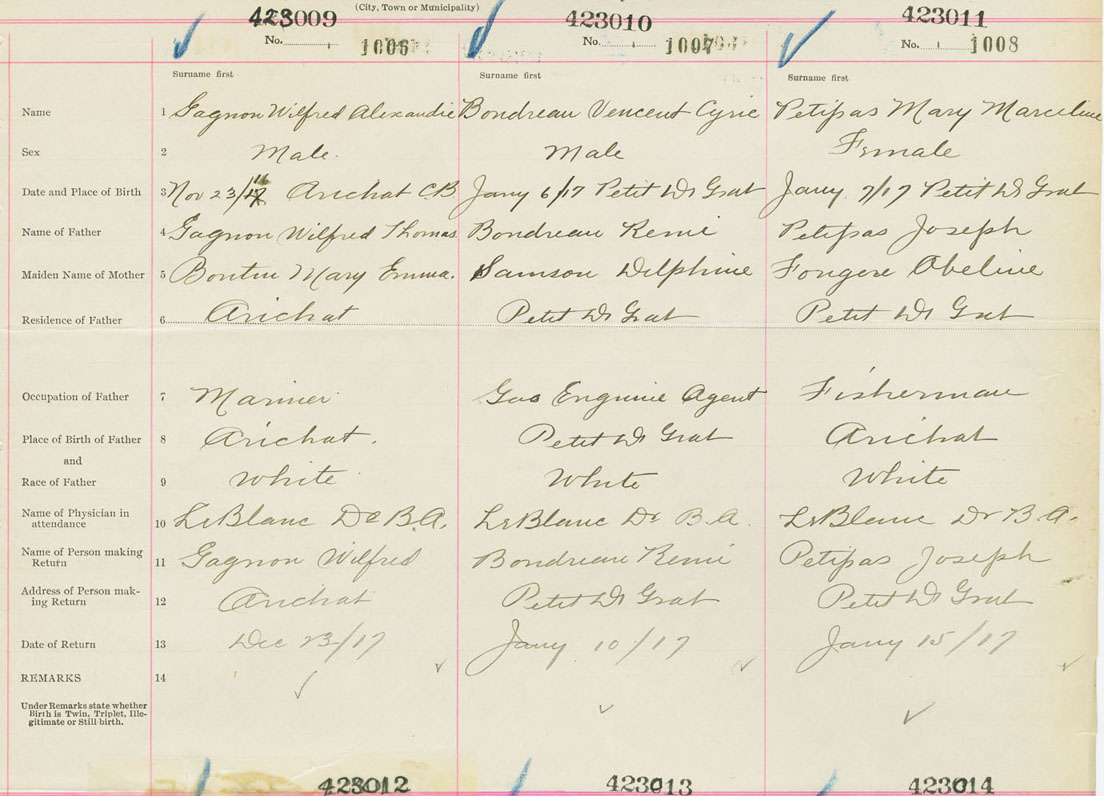 (City, Town or Municipality)
423009 423010 423011
No. 1006 No. 1007 No. 1008
Surname first Surname first Surname first
Name 1 Gagnon Wilfred Alexandre Boudreau Vencent Cyric Petipas Mary Marceline
Sex 2 Male. Male Female
Date and Place of Birth 3 Nov 23/16 Arichat C.B Jany 6/17 Petit De Grat Jany 7/17 Petit De Grat
Name of Father 4 Gagnon Wilfred Thomas Boudreau Remi Petipas Joseph
Maiden Name of Mother 5 Boutin Mary Emma. Samson Delphine Fougere Obeline
Residence of Father 6 Arichat Petit De Grat Petit De Grat
Occupation of Father 7 Mariner Gas Enginie Agent Fisherman
Place of Birth of Father 8 Arichat. Petit De Grat Arichat
and
Race of Father 9 White White White
Name of Physician in
attendance 10 LeBlanc Dr B.A. LeBlanc Dr B.A. LeBlanc Dr B.A.
Name of Person making
Return 11 Gagnon Wilfred Boudreau Remi Petipas Joseph
Address of Person mak-
ing Return 12 Arichat Petit De Grat Petit De Grat
Date of Return 13 Dec 23/17 Jany 10/17 Jany 15/17
REMARKS 14
Under Remarks state whether
Birth is Twin, Triplet, Ille-
gitimate or Still-birth.
423012 423013 423014